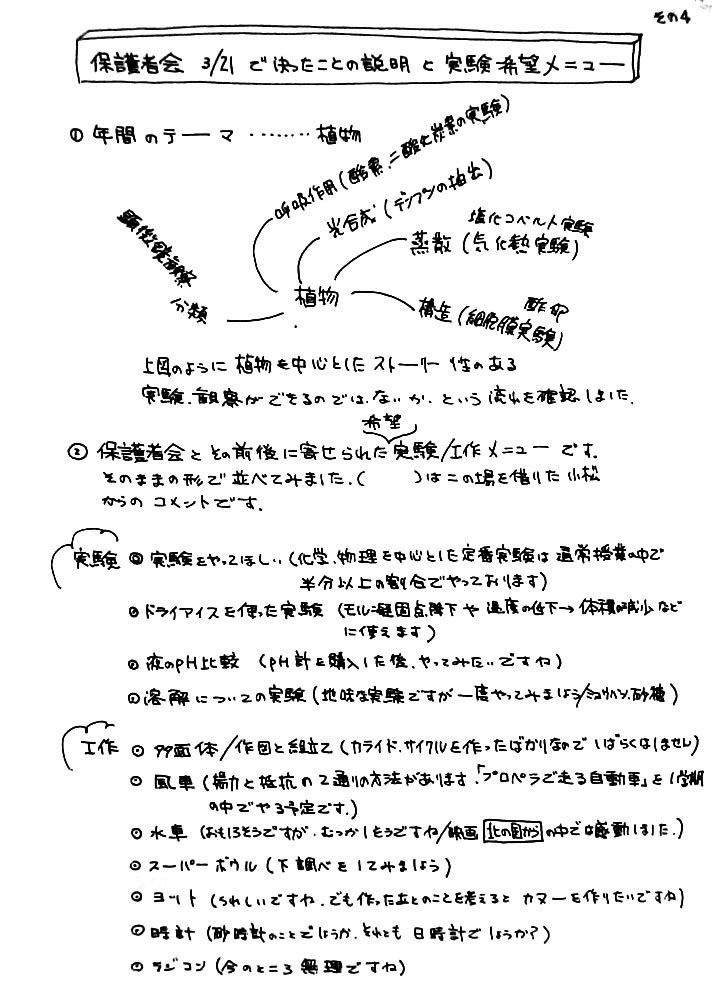 その4
保護者会 3/21 で決ったことの説明と実験希望メニュー
① 年間のテーマ ‥‥‥‥ 植物
呼吸作用(酸素、二酸化炭素の実験)
光合成(デンプンの抽出)
塩化コバルト実験
蒸散(気化熱実験)
顕微鏡観察
分類
植物
酢卵
構造(細胞膜実験)
上図のように植物を中心としたストーリー性のある
実験、観察ができるのではないか、という流れを確認しました。
希望
② 保護者会とその前後に寄せられた実験/工作メニューです。
そのままの形で並べてみました。(　　)はこの場を借りた小松
からのコメントです。
実験 ◎ 実験をやってほしい(化学、物理を中心とした定番実験は通常授業の中で
半分以上の割合でやっております)
◎ ドライアイスを使った実験 (モル凝固点降下や温度の低下→体積減少など
に使えます)
◎ 液のpH比較 (pH計を購入した後、やってみたいですね)
◎ 溶解についての実験(地味な実験ですが一度やってみましょう/ミョウバン、砂糖)
工作 ◎ 多面体/作図と組立て(カライド、サイクルを作ったばかりなのでしばらくはしません)
◎ 風車(揚力と抵抗の2通りの方法があります。「プロペラで走る自動車」を1学期
の中でやる予定です。)
◎ 水車 (おもしろそうですが、むつかしそうですね/映画 北の国から の中では感動しました。)
◎ スーパーボウル(下調べをしてみましょう)
◎ ヨット (うれしいですね。でも作ったあとのことを考えるとカヌーを作りたいですね)
◎ 時計 (砂時計のことでしょうか、それとも日時計でしょうか?)
◎ ラジコン(今のところ無理ですね)